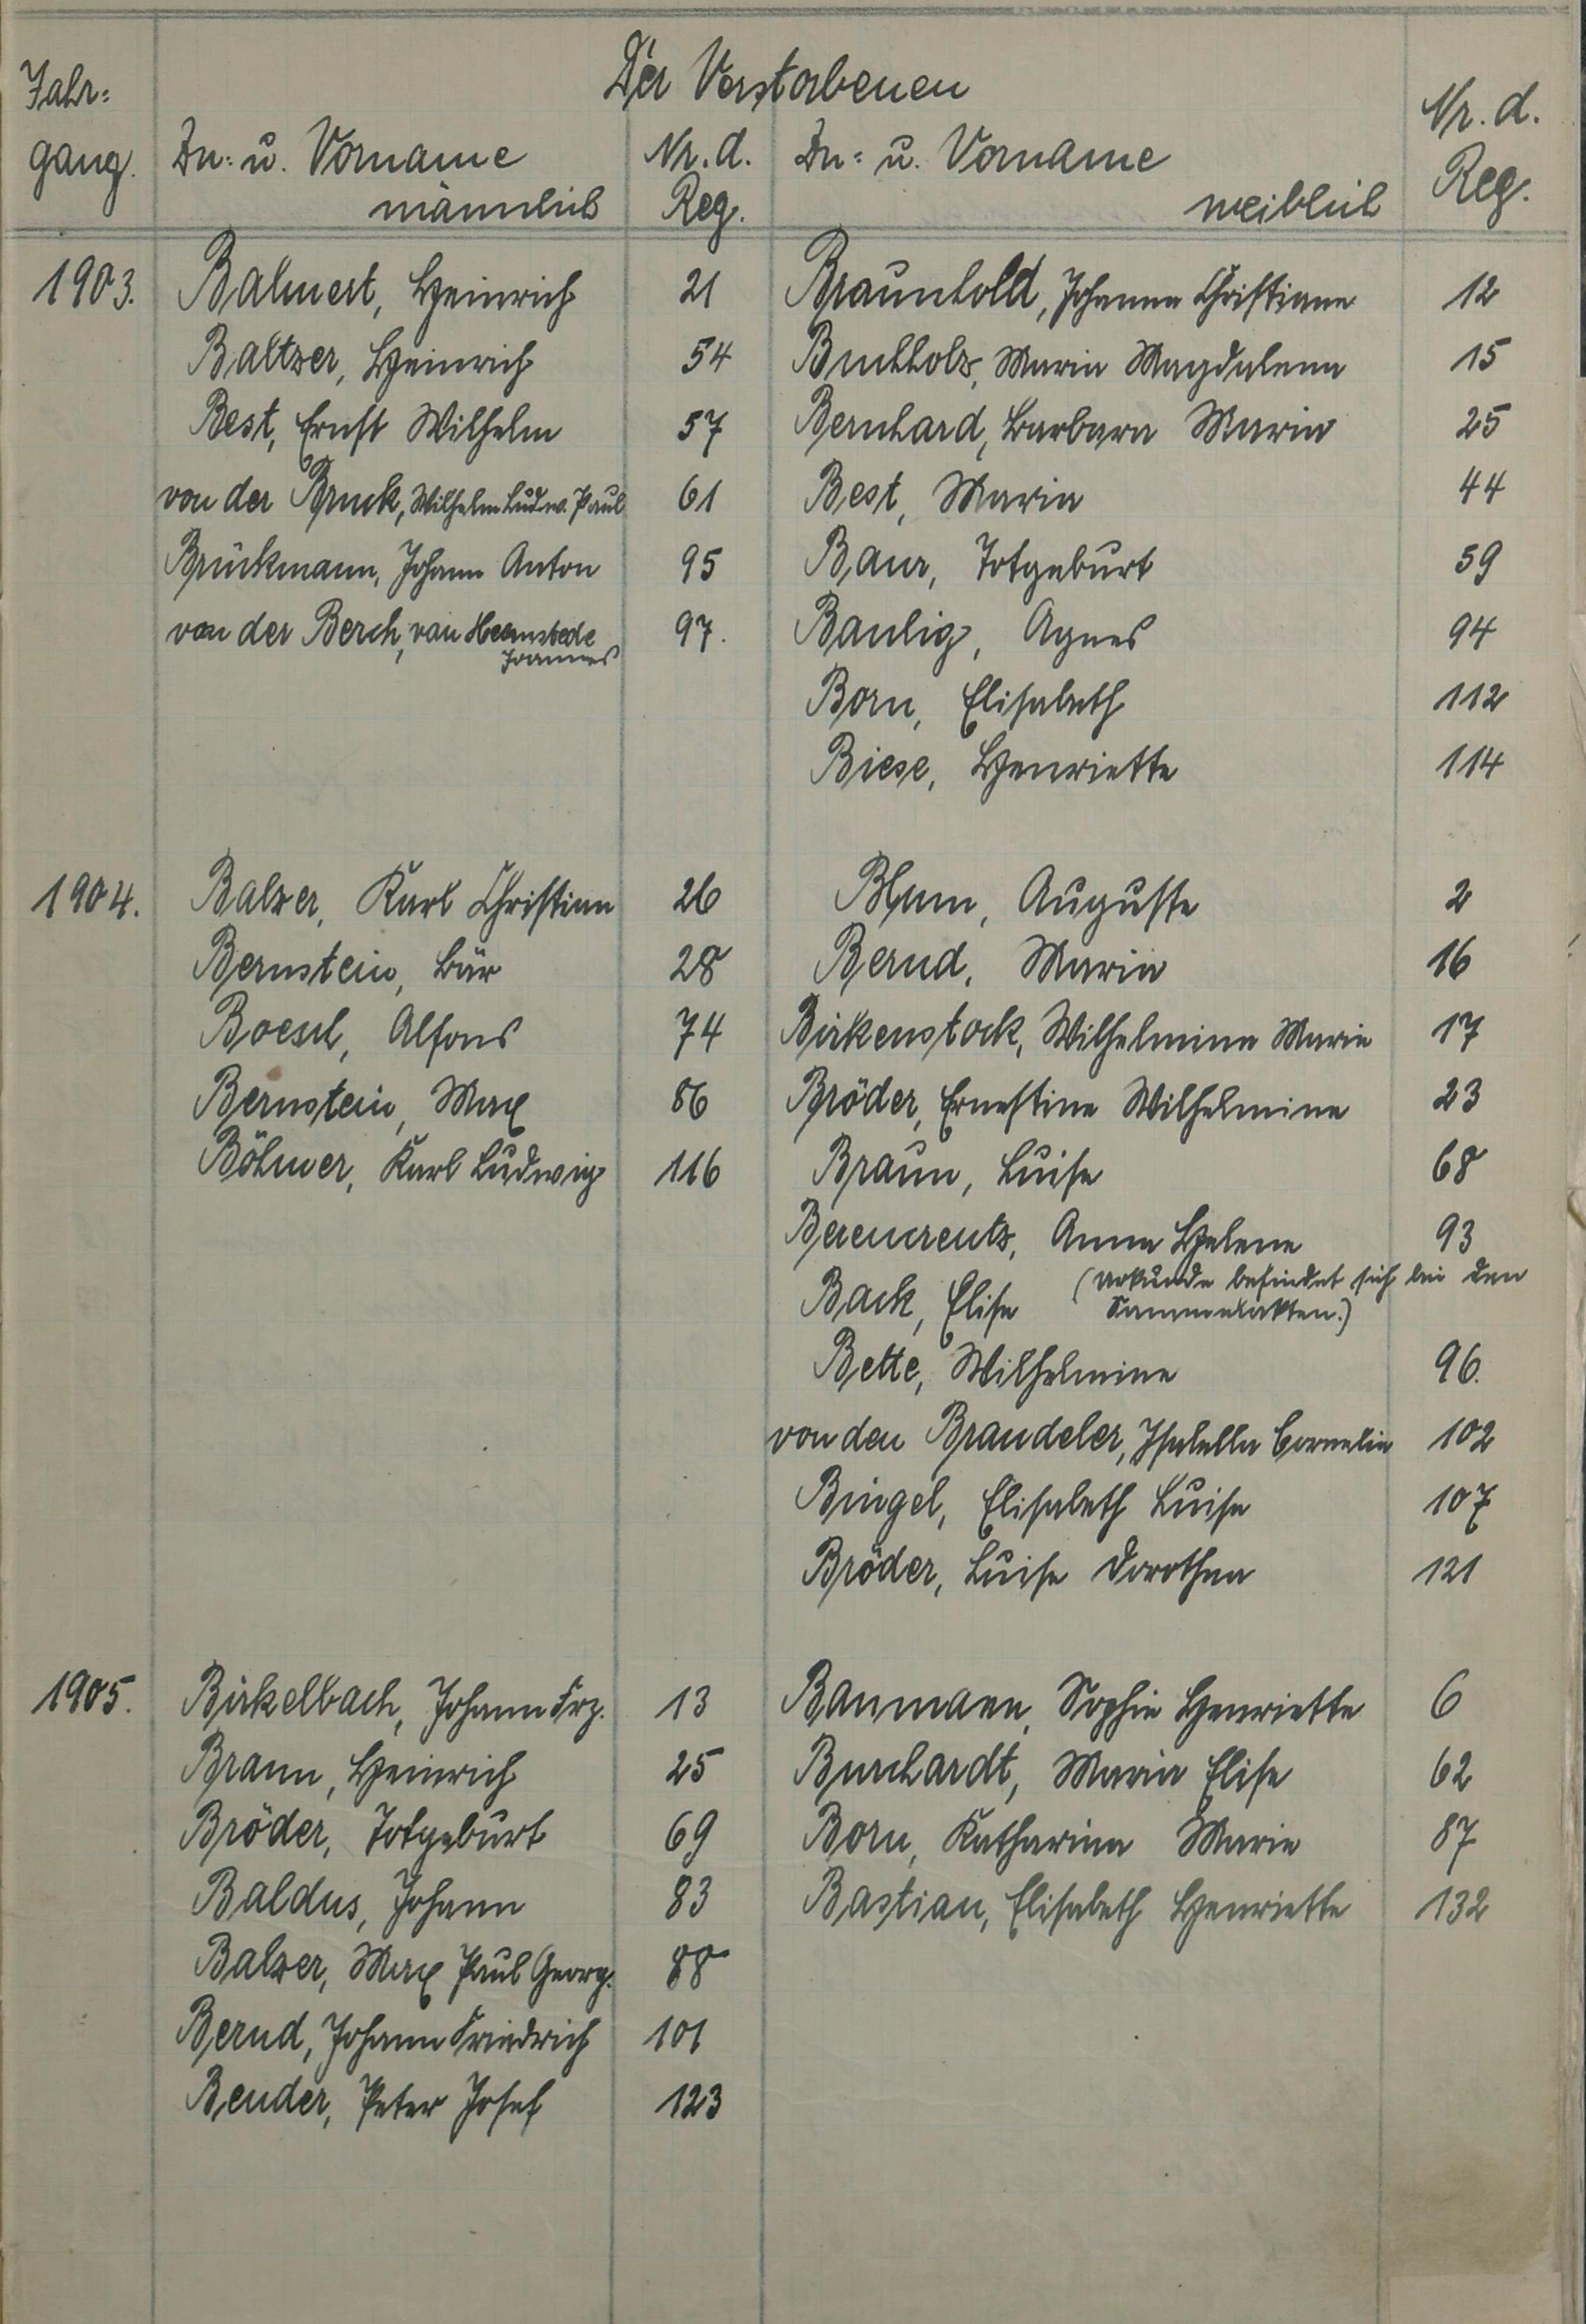 Der Verstorbenen
Jahr=
gang.
Zu= u. Vorname
männlich
Nr. d.
Reg.
Zu= u. Vorname
weiblich
Nr. d.
Reg.
1903. Balmert, Heinrich 21 Braunhold, Johanna Christiane 12
Baltzer, Heinrich 54 Buchholz, Maria Magdalena 15
Best, Ernst Wilhelm 57 Bernhard, Barbara Maria 25
von der Bruck, Wilhelm Ludw. Paul 61 Best, Maria 44
Brückmann, Johann Anton 95 Baur, Totgeburt 59
von der Berch, van Heemstede 97. Baulig, Agnes 94
Joannes
Born, Elisabeth 112
Biese, Henriette 114
1904. Balzer, Karl Christian 26 Blum, Auguste 2
Bernstein, Bär 28 Bernd, Maria 16
Boesch, Alfons 74 Birkenstock, Wilhelmina Marie 17
Bernstein, Max 86 Bröder, Ernestine Wilhelmine 23
Böhmer, Karl Ludwig 116 Braun, Luise 68
Anna Helene 93
Back, Elise (Urkunde befindet sich bei den
Sammelakten.)
Bette, Wilhelmine 96.
von den Brandeler, Isabella Cornelia 102
Bingel, Elisabeth Luise 107
Bröder, Luise Dorothea 121
1905. Birkelbach, Johann Frz. 13 Baumann, Sophie Henriette 6
Braun, Heinrich 25 Burchardt, Maria Elise 62
Bröder, Totgeburt 69 Born, Katharina Marie 87
Baldus, Johann 83 Bastian, Elisabeth Henriette 132
Balzer, Max Paul Georg. 88
Bernd, Johann Friedrich 101
Bender, Peter Josef 123